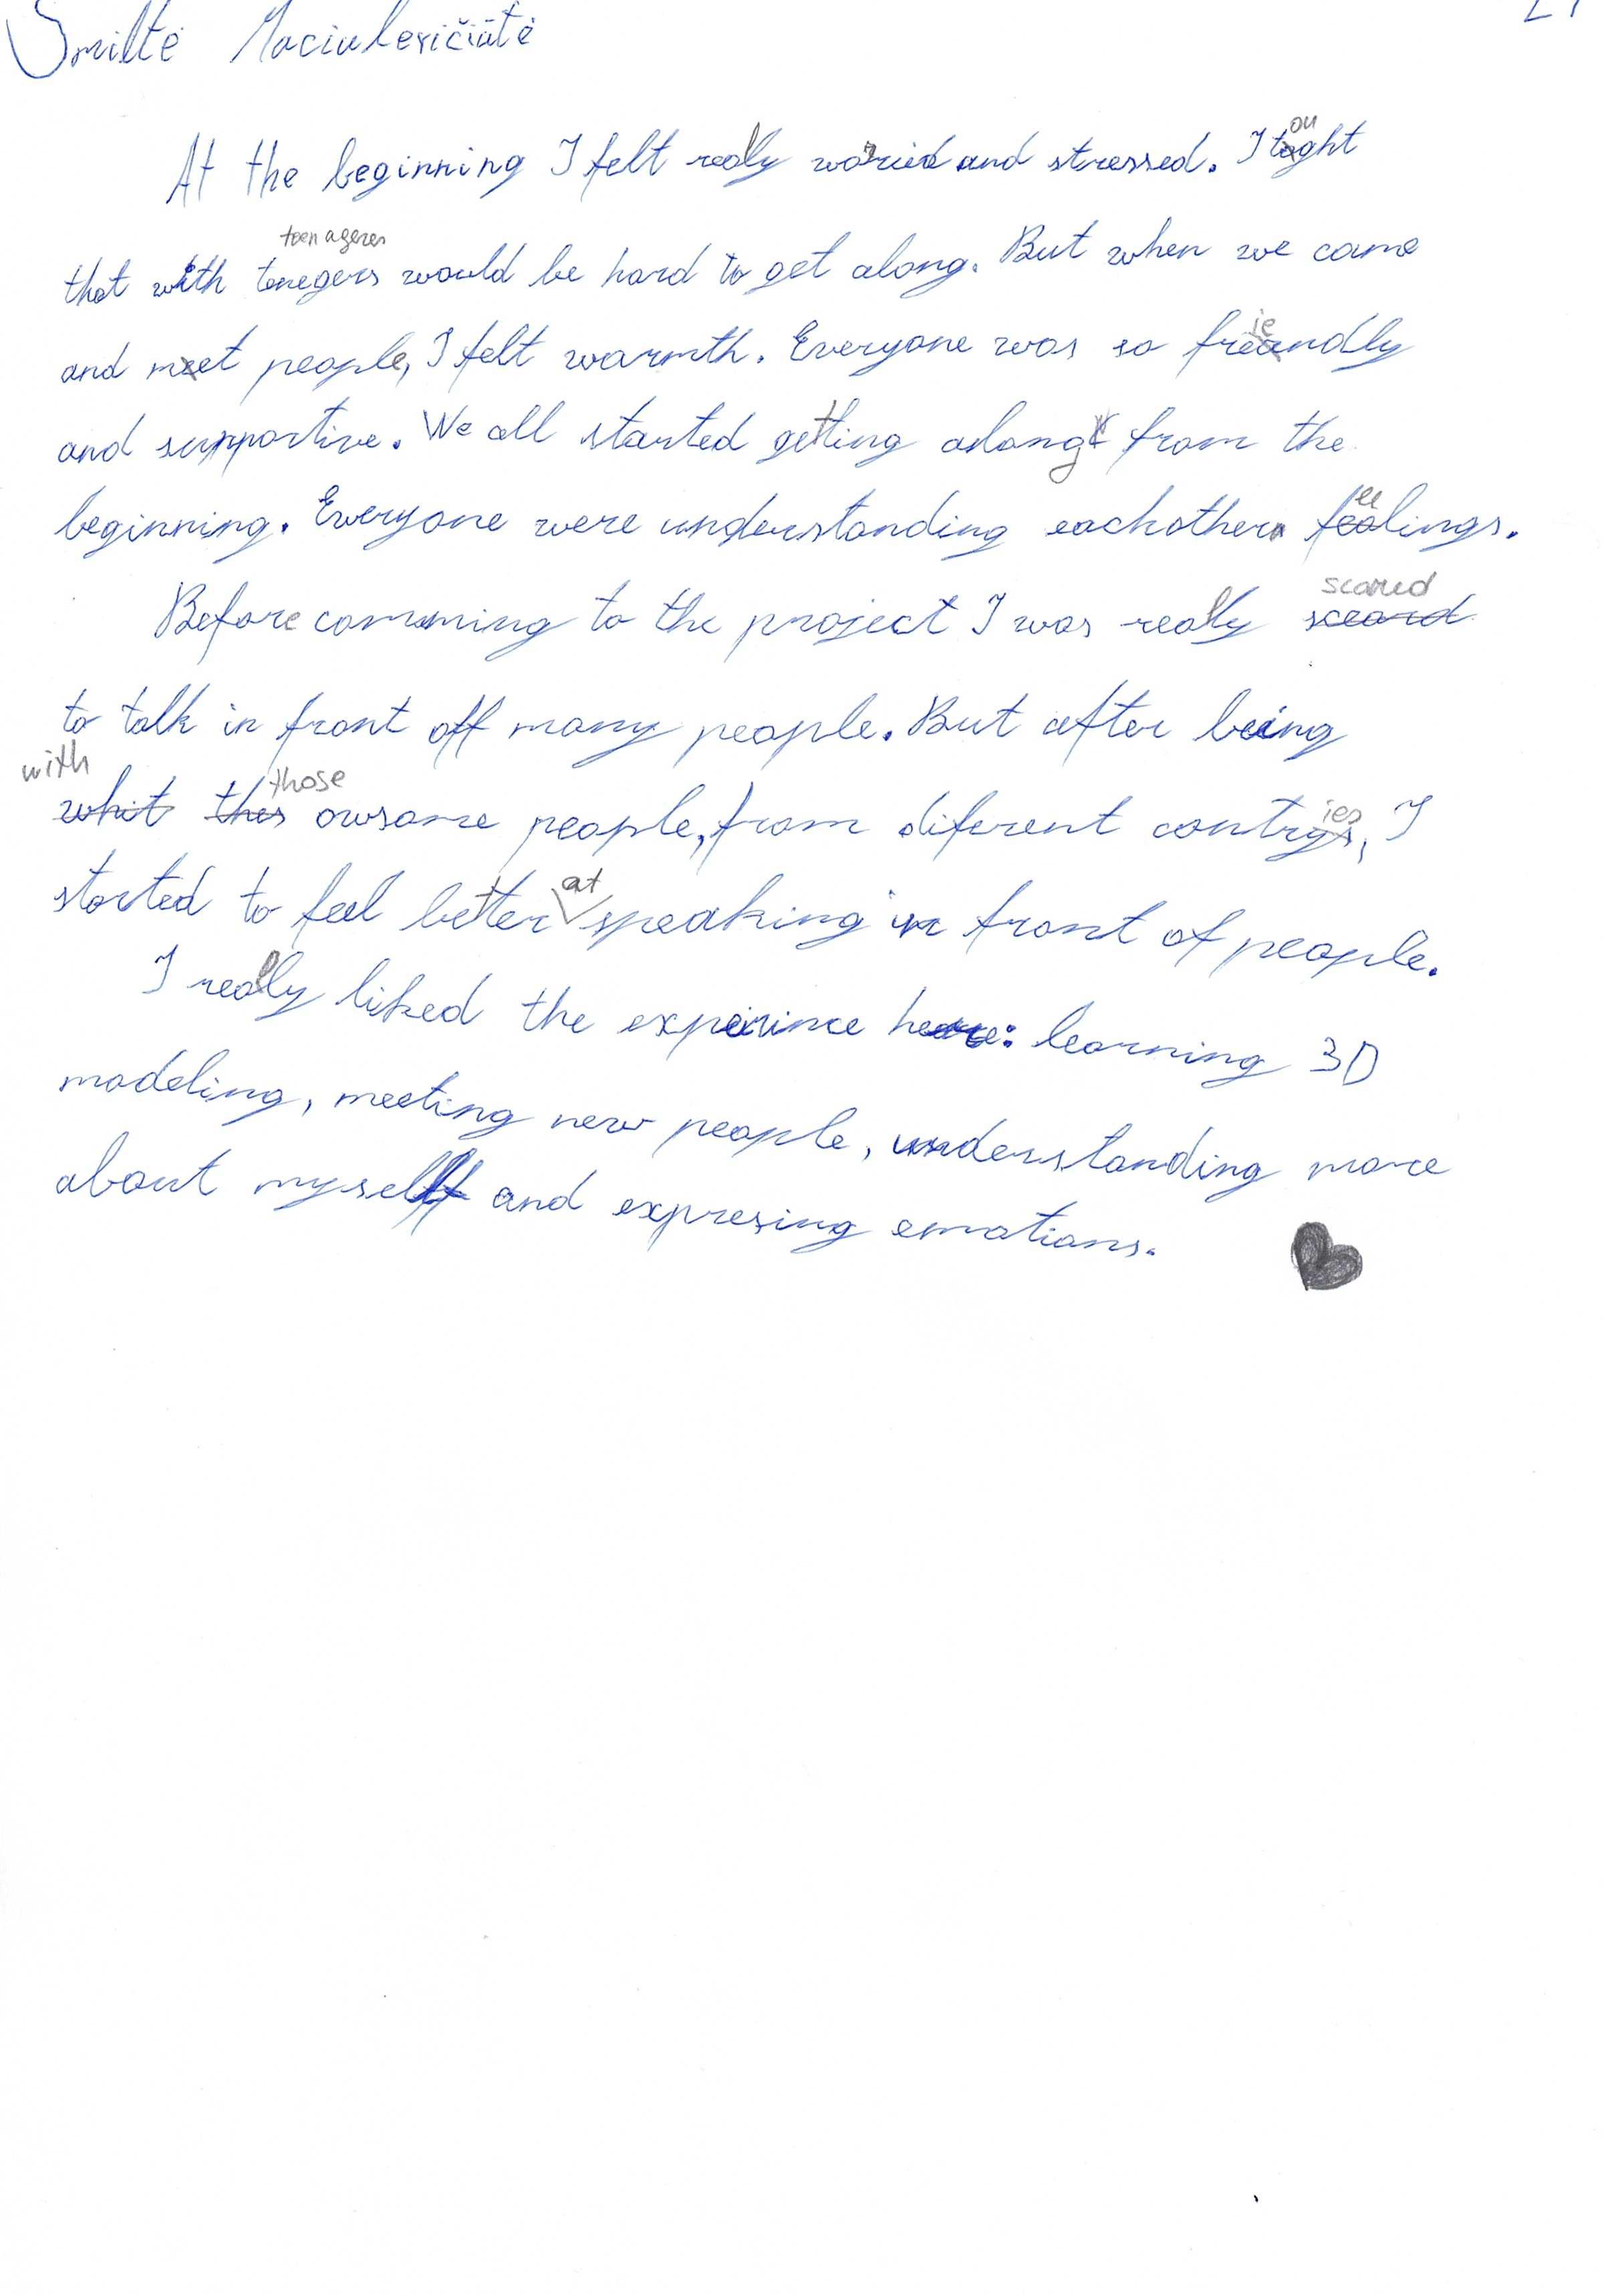 Smiltė Maciulevičiūtė
At the beginning I felt really worried and stressed. I tought
that with teenagers would be hard to get along. But when we came
and met people, I felt warmth. Everyone was so friendly
and supportive. We all started getting along from the
beginning. Everyone were understanding eachothers feelings.
Before comming to the project I was really scared
to talk in front off many people. But after being
with those owsome people, from diferent contries, I
started to feel better at speaking in front of people.
I really liked the experince here: learning 3D
modeling, meeting new people, understanding more
about myself and expresing emotions.